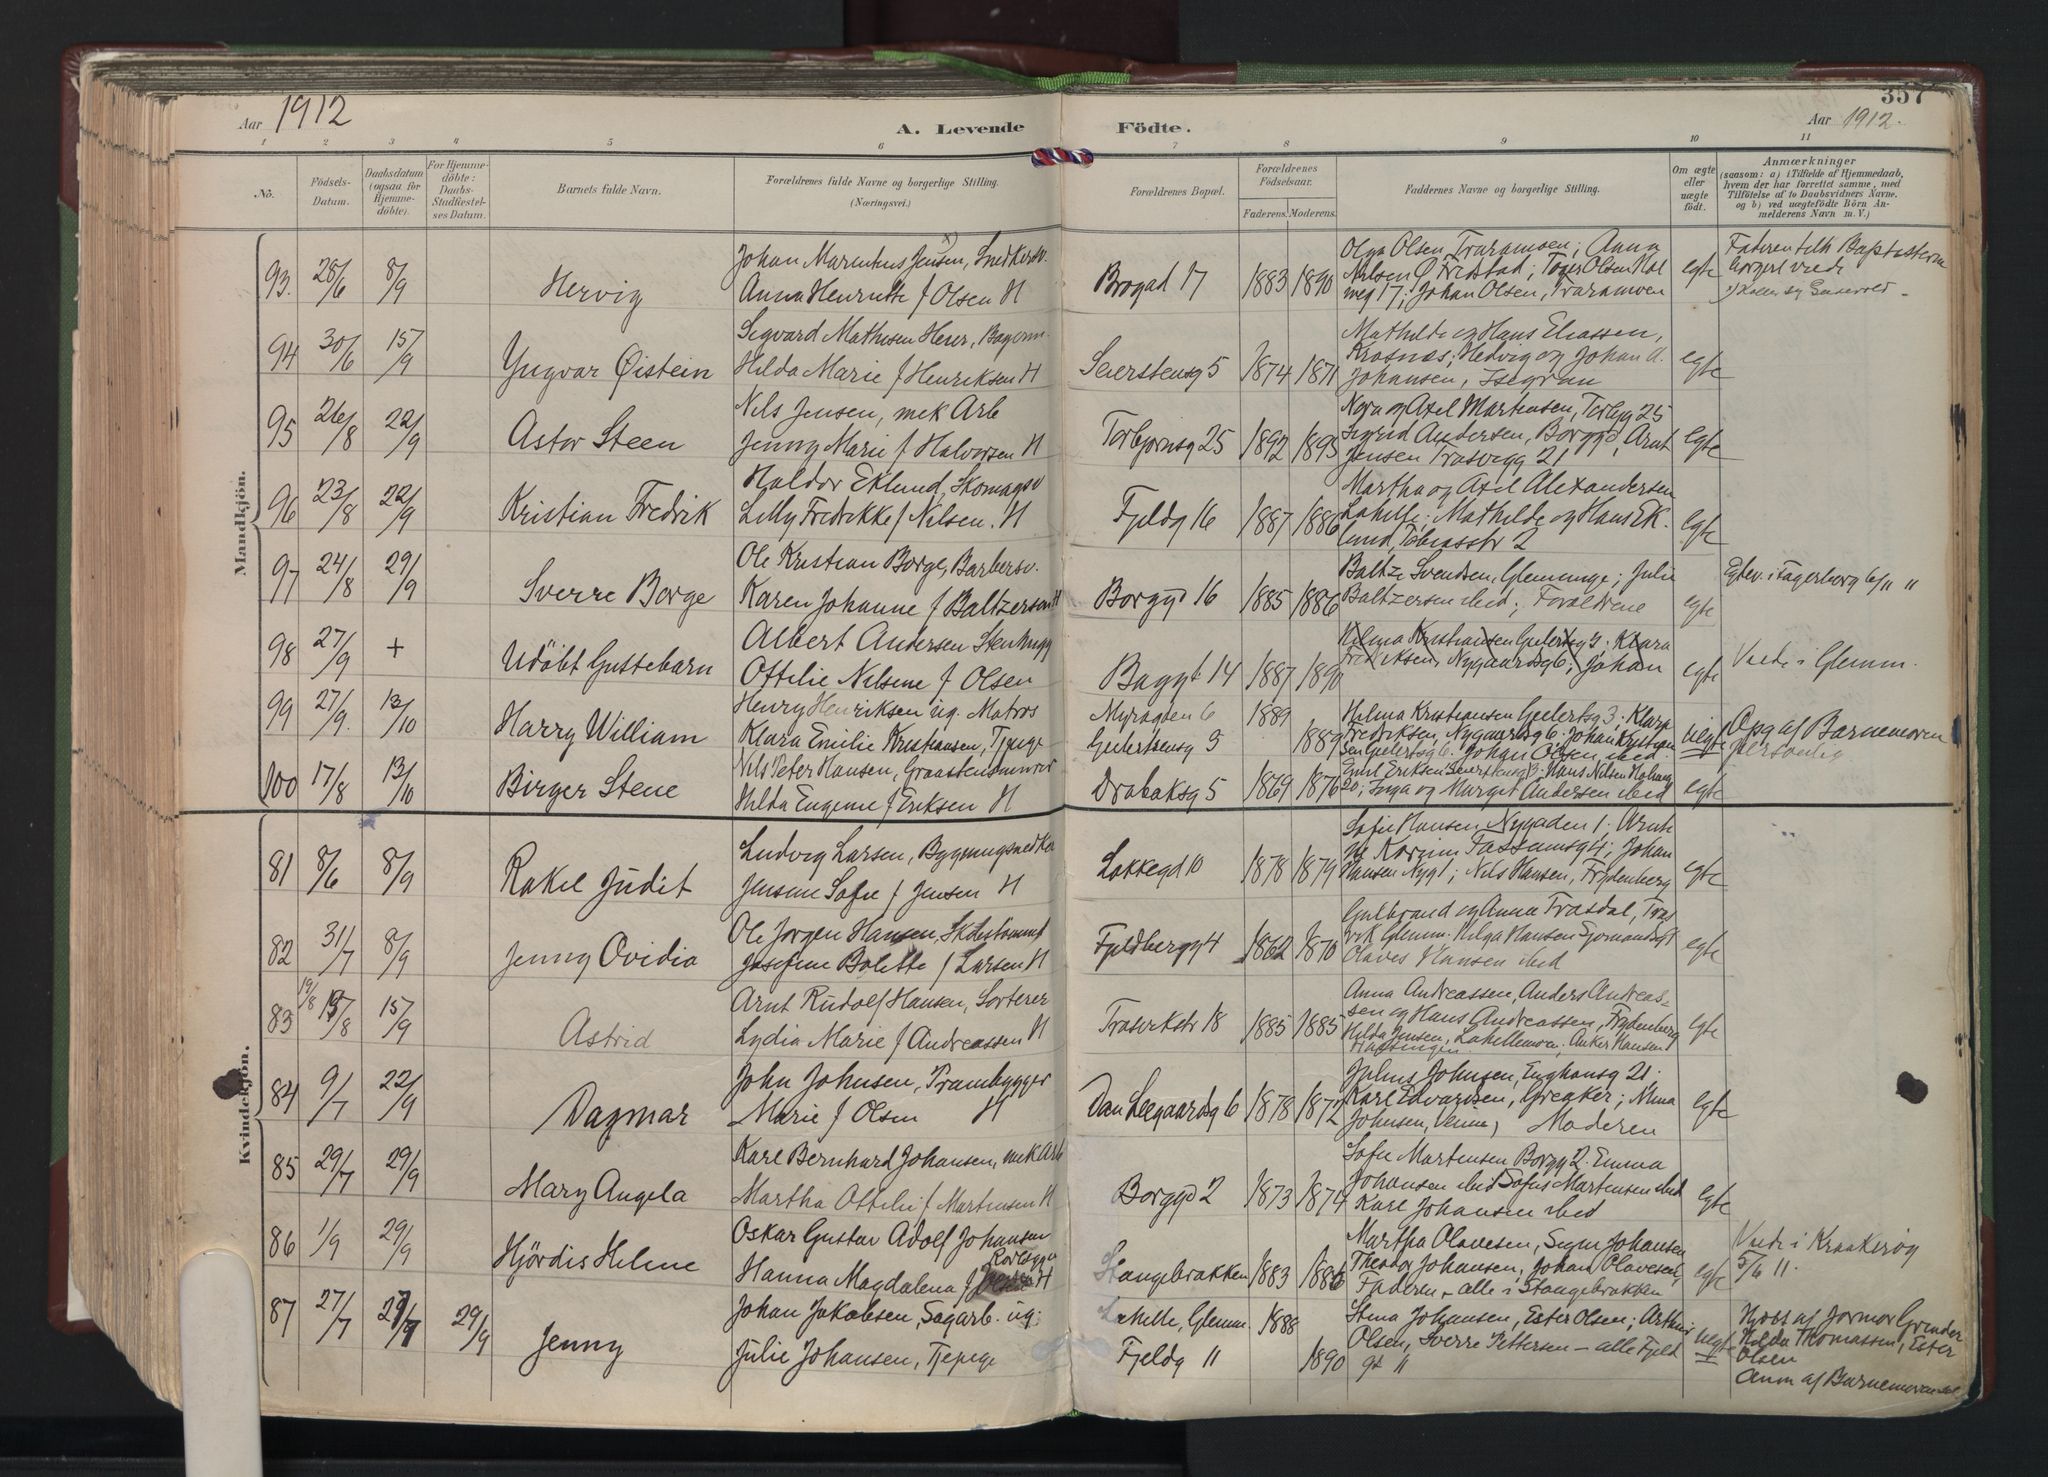 Aar 1912
A. Levende Födte.
357
Aar 1912.
1 2 3 4 5 6 7 8 9 10 11
No.
Födsels-Datum.
Daabsdatum (ogsaa for Hjemme-döbte).
For Hjemme-döbte: Daabs-Stadfæstel-ses Datum.
Barnets fulde Navn.
Forældrenes fulde Navne og borgerlige Stilling.
(Næringsvei.)
Forældrenes Bopæl.
Forældrenes Födselsaar.
Faderens. Moderens.
Faddernes Navne og borgerlige Stilling.
Om ægte eller uægte födt.
Anmærkninger
(saasom: a) i Tilfælde af Hjemmedaab,
hvem der har forrettet samme, med
Tilföielse af to Daabsvidners Navne.
og b) ved uægtefödte Börn An-
melderens Navn m. V.)
Mandkjön.
93. 28/6 8/9 Hervig
Johan Marentius Jensen, Snedkersv.
Anna Henriette f Olsen H
Brogad 17 1883 1890
Olga Olsen, Traramoen; Anna
Nilsen Ø Fredstad; Tager Olsen Hol
meg 17; Johan Olsen, Traramoen
egte
Faderen tilh Baptisterne
borgerl viede
94 30/6 15/9 Yngvar Øistein
Segvard Mathisen Heier, Bagerm.
Hilda Marie f Henriksen H
Seierstensg 5 1874 1871
Mathilde og Hans Eliassen,
Krosnæs; Hedvig og Johan A.
Johansen, Isegran
egte
95 26/8 22/9 Astor Steen
Nils Jensen, mek Arb
Jenny Marie f Halvorsen H
Torbjornsg 25 1892 1893
Nora og Axel Martensen, Torbjg 25
Sigrid Andersen, Borggd, Arnt
Jensen Trosvigg 21
egte
96 23/8 22/9 Kristian Fredrik
Haldor Eklund, Skomagsv
Lilly Fredrikke f Nilsen. H
Fjeldg 16 1887 1886
Martha og Axel Alexandersen
Lahelle; Mathilde og Hans Ek-
lund, Tobiasstr 2
egte
97 24/8 29/9 Sverre Borge
Ole Kristian Borge, Barbersv.
Karen Johanne f Baltzersen H
Borggd 16 1885 1886
Baltze Svendsen, Glemminge; Julie
Baltzersen ibid; Forældrene
egte
Egtev. i Fagerborg 6/11 11
98 27/9 + Udöbt Guttebarn
Albert Andersen Stenhugg
Ottilie Nilsine f Olsen
Baggt 14 1887 1890
Hilma Kristiansen Geelertsg 3; Klara
Fredriksen, Nygaardsg 6; Johan
egte
Viede i Glemm.
99 27/9. 13/10 Harry William
Henry Henriksen ug. Matros
Klara Emilie Kristiansen, Tjpige
Myragden 6 1889
Geelertsensg 3 1889
Hilma Kristiansen Geelertsg 3; Klara
Fredriksen, Nygaardsg 6. Johan Kristian
sen Geelertsg 6. Johan Olsen ibid.
uegt
Opg af Barnemoren
personlig
100 17/8 13/10 Birger Stene
Nils Peter Hansen, Graastensmurer
Hilda Eugenie f Eriksen H
Drobaksg 5 1869 1876
Emil Eriksen Seierstensg 3. Hans Nilsen Holmeg
20; Inga og Margit Andersen ibid
egte
Kvindekjön.
81 8/6 8/9 Rakel Judit
Ludvig Larsen, Bygningssnedker
Jensine Sofie f Jensen H
Lökkegd 10 1878 1879
Sofie Hansen Nygaden 1; Arnt
Hansen Nyg 1; Nils Hansen, Frydenberg
egte
82 31/7 8/9 Jenny Ovidia
Ole Jorgen Hansen, Skibstömmer
Josefine Bolette f Larsen H
Fjeldbergg 4 1862 1870
Gulbrand og Anna Trosdal, Tros
vik Glemm. Helga Hansen
Olaves Hansen ibid
egte
83 19/8 15/8 15/9 Astrid
Arnt Rudolf Hansen, Sorterer
Lydia Marie f Andreassen H
Trosvikstr 18 1885 1885
Anna Andreassen, Anders Andreas-
sen og Hans Andreassen, Frydenberg
Hilda Jensen, Lahellemoen; Anker Hansen
egte
84 9/7 22/9 Dagmar
John Johnsen, Prambygger
Marie f Olsen H
Dan Leegaardsg 6 1878 1872
Julius Johnsen, Enghausg 21.
Karl Edvardsen, Greaker; Mina
Johnsen, Moderen
egte
85 29/7 29/9 Mary Angela
Karl Bernhard Johansen, mek Arb
Martha Ottilie f Martensen H
Borggd 2 1873 1874
Sofie Martensen Borgg 2. Emma
Johansen ibid Sofus Martensen ibid
Karl Johansen ibid
egte
86 1/9 29/9 Hjördis Helene
Oskar Gustav Adolf Johansen
Hanna Magdalena f H
Stangebrakken 1883 1886
Martha Olavesen, Signe Johansen
Theodor Johansen, Johan Olavesen,
Faderen - alle i Stangebrakken
egte
Viede i Kraakeröy
5/6 11.
87 27/7 27/7 29/9 Jenny
Johan Jakobsen, Sagarb. ug:
Julie Johansen, Tjepige
Lahelle, Glemm. 1888
Fjeldg 11 1890
Stina Johansen, Ester Olsen; Arthur
Olsen, Sverre Pettersen - alle Fjeld
gt 11
uegte
Hjdöbt af Jormor Grinder
Hilda Thomassen, Ester
Olsen
Anm af Barnemoren